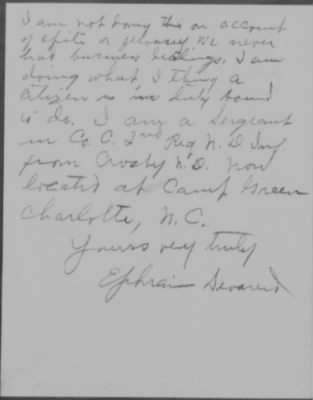 I am not doing this on account
of spite or jelousy. We never
had business dealings. I am
doing what I thing a
citizen is in duty bound
to do. I am a sergeant
in Co. C. 2nd Reg N. D Inf
from Crosby N. D. now
located at Camp Green
Charlotte, N. C.
Yours very truly
Ephraim